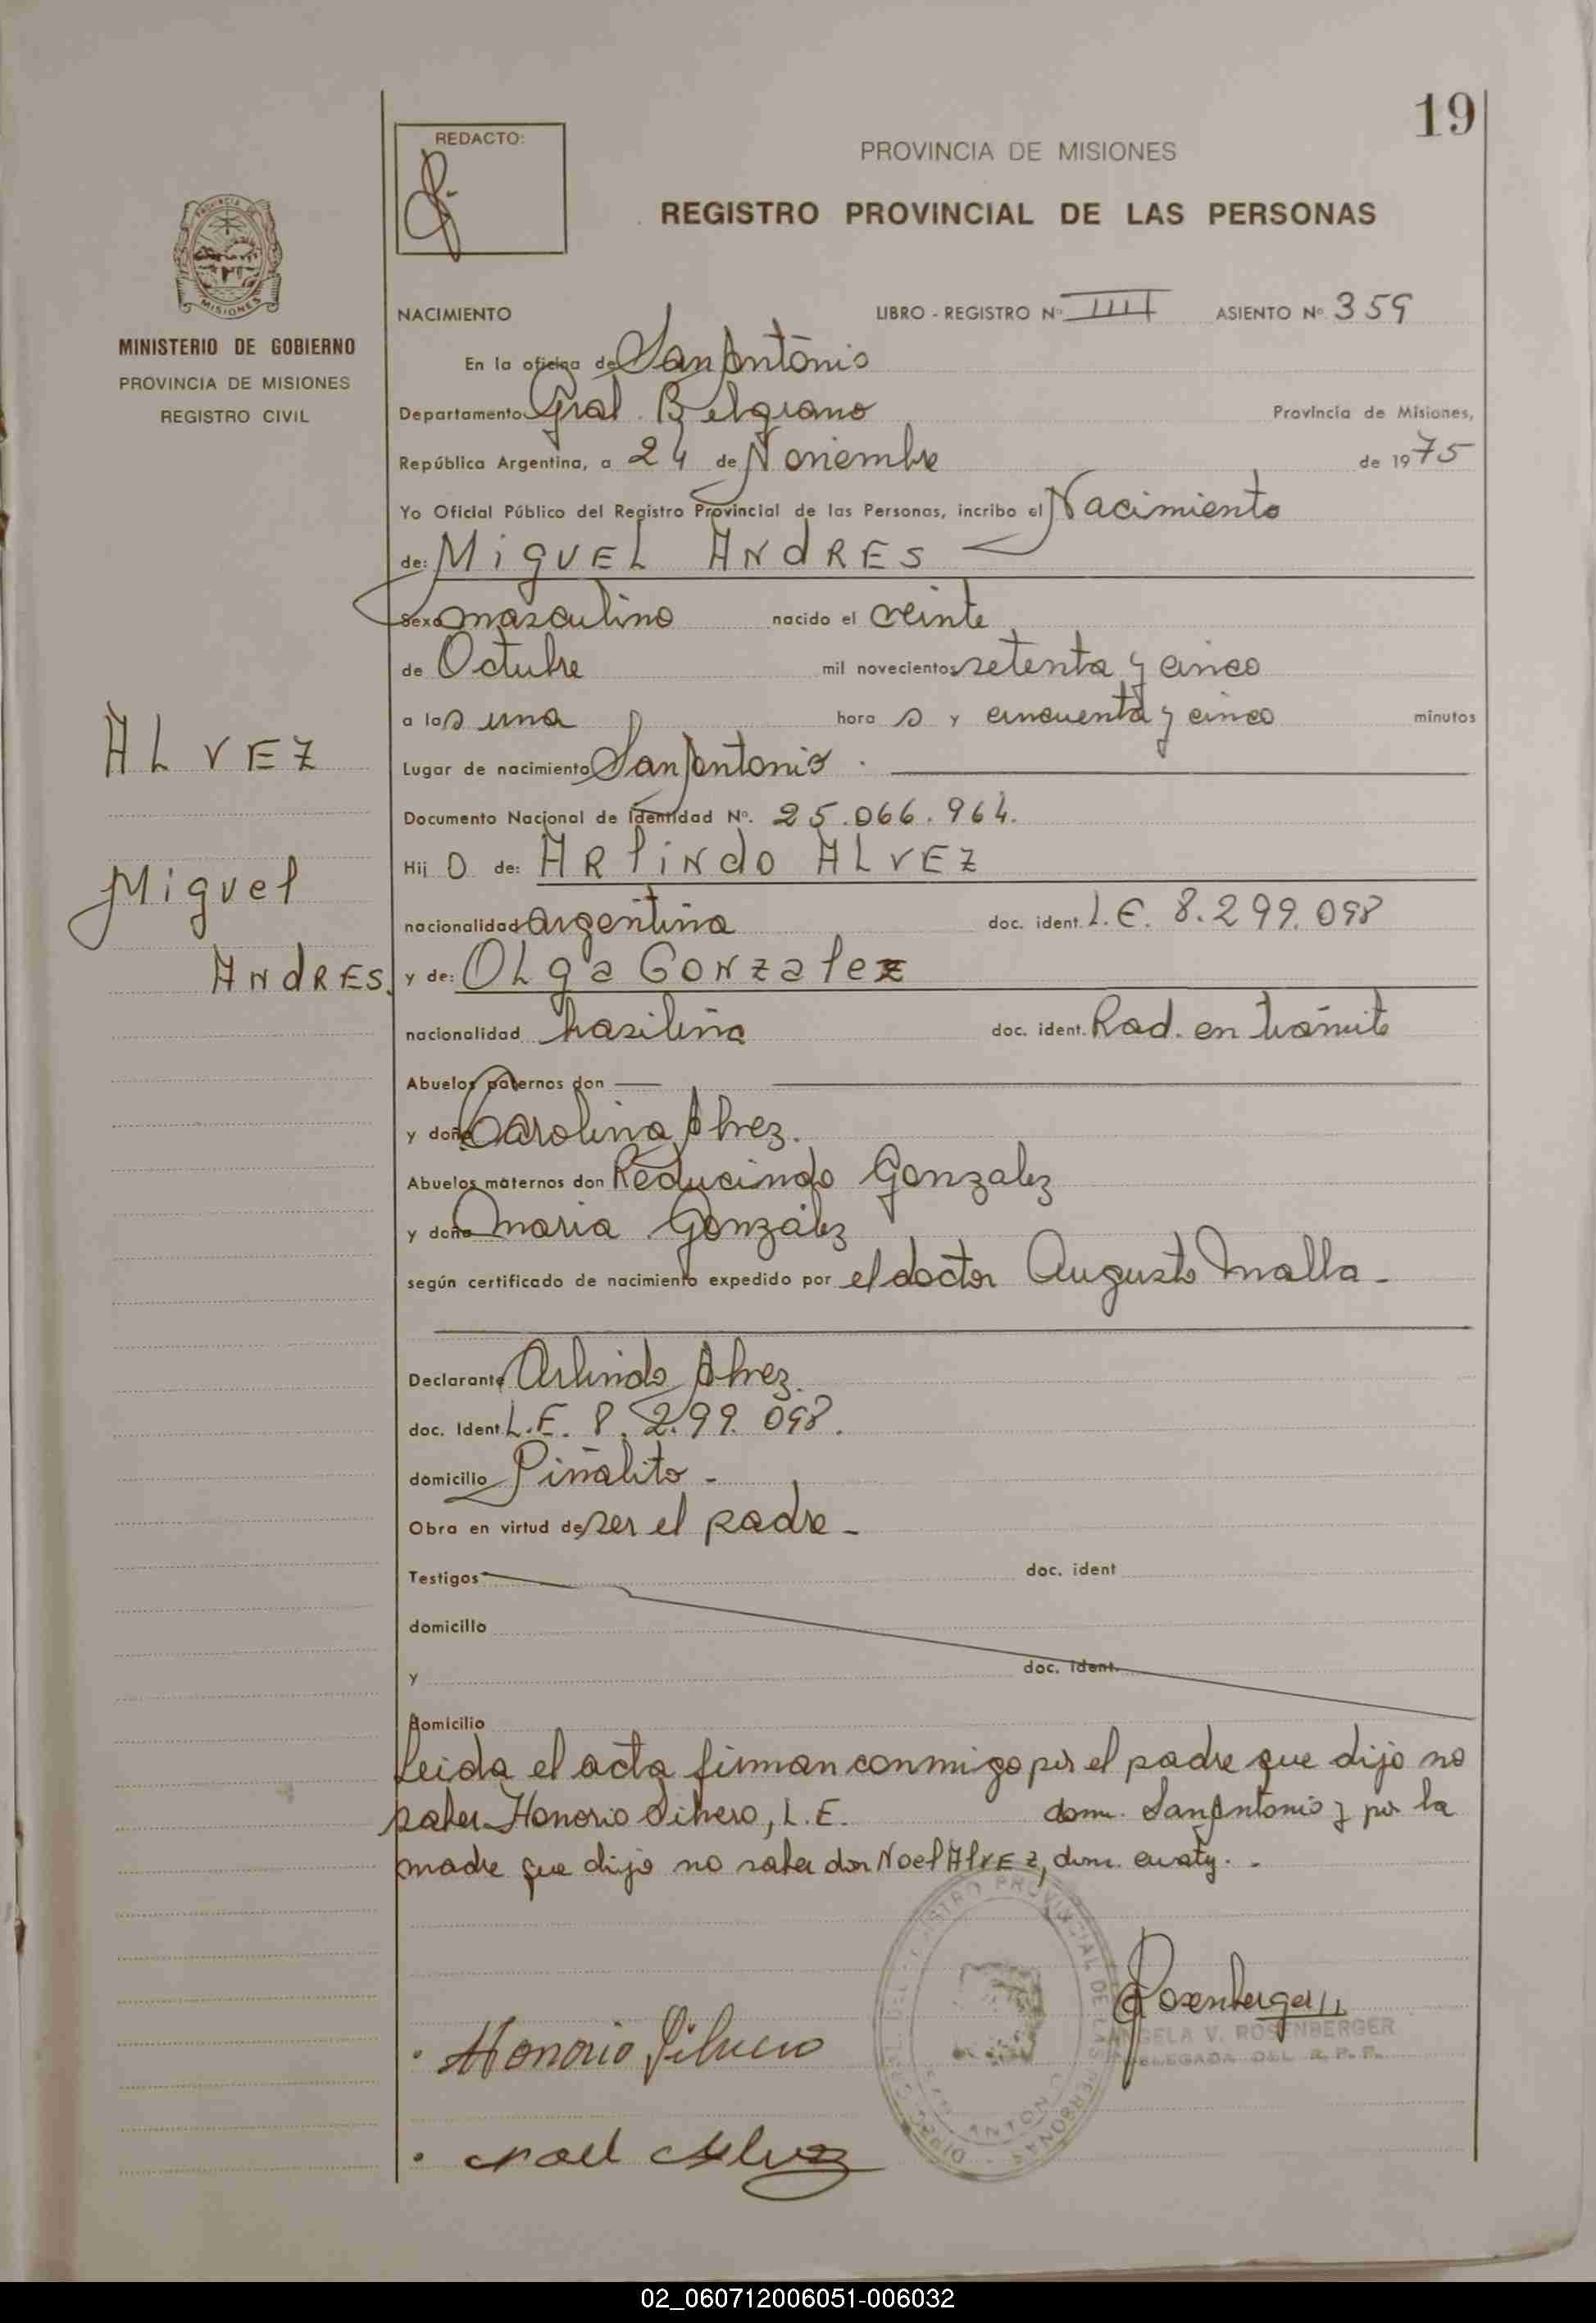 19
REDACTO:
PROVINCIA DE MISIONES
REGISTRO PROVINCIAL DE LAS PERSONAS
MISIONES
MINISTERIO DE GOBIERNO
PROVINCIA DE MISIONES
REGISTRO CIVIL
NACIMIENTO LIBRO - REGISTRO Nº IIII ASIENTO Nº 359
En la oficina de San Antonio
Departamento Gral. Belgrano Provincia de Misiones,
República Argentina, a 24 de Noviembre de 1975
Yo Oficial Público del Registro Provincial de las Personas, incribo el Nacimiento
de: MiguEL ANdRES
Sexo masculino nacido el veinte
de Octubre mil novecientos setenta y cinco
a las una hora s y cincuenta y cinco minutos
ALVEZ
Miguel
ANdRES.
Lugar de nacimiento San Antonio.
Documento Nacional de Identidad Nº. 25.066.964.
Hij o de: ARlindo ALVEZ
nacionalidad argentina doc. ident. L.E. 8.299.098
y de: OLga GoNzalez
nacionalidad brasileña doc. ident. Rad. en trámite
Abuelos paternos don
y doña Carolina Alvez.
Abuelos maternos don Reducindo Gonzalez
y doña maria González
según certificado de nacimiento expedido por el doctor Augusto Malla -
Declarante Arlindo Alvez.
doc. Ident. L.E. 8.299.098.
domicilio Piñalito -
Obra en virtud de ser el padre -
Testigos doc. ident
domicilio
y doc. ident.
domicilio
Leida el acta firman conmigo por el padre que dijo no
saber Honorio Silvero, L.E. dom. San Antonio y por la
madre que dijo no saber don Noel AlvEz, dom.
Rosenberger
ANGELA V. ROSENBERGER
DELEGADA DEL R. P. P.
Honorio Silvero
Noel Alvez
REGISTRO PROVINCIAL DE LAS PERSONAS
SAN ANTONIO
02_060712006051-006032